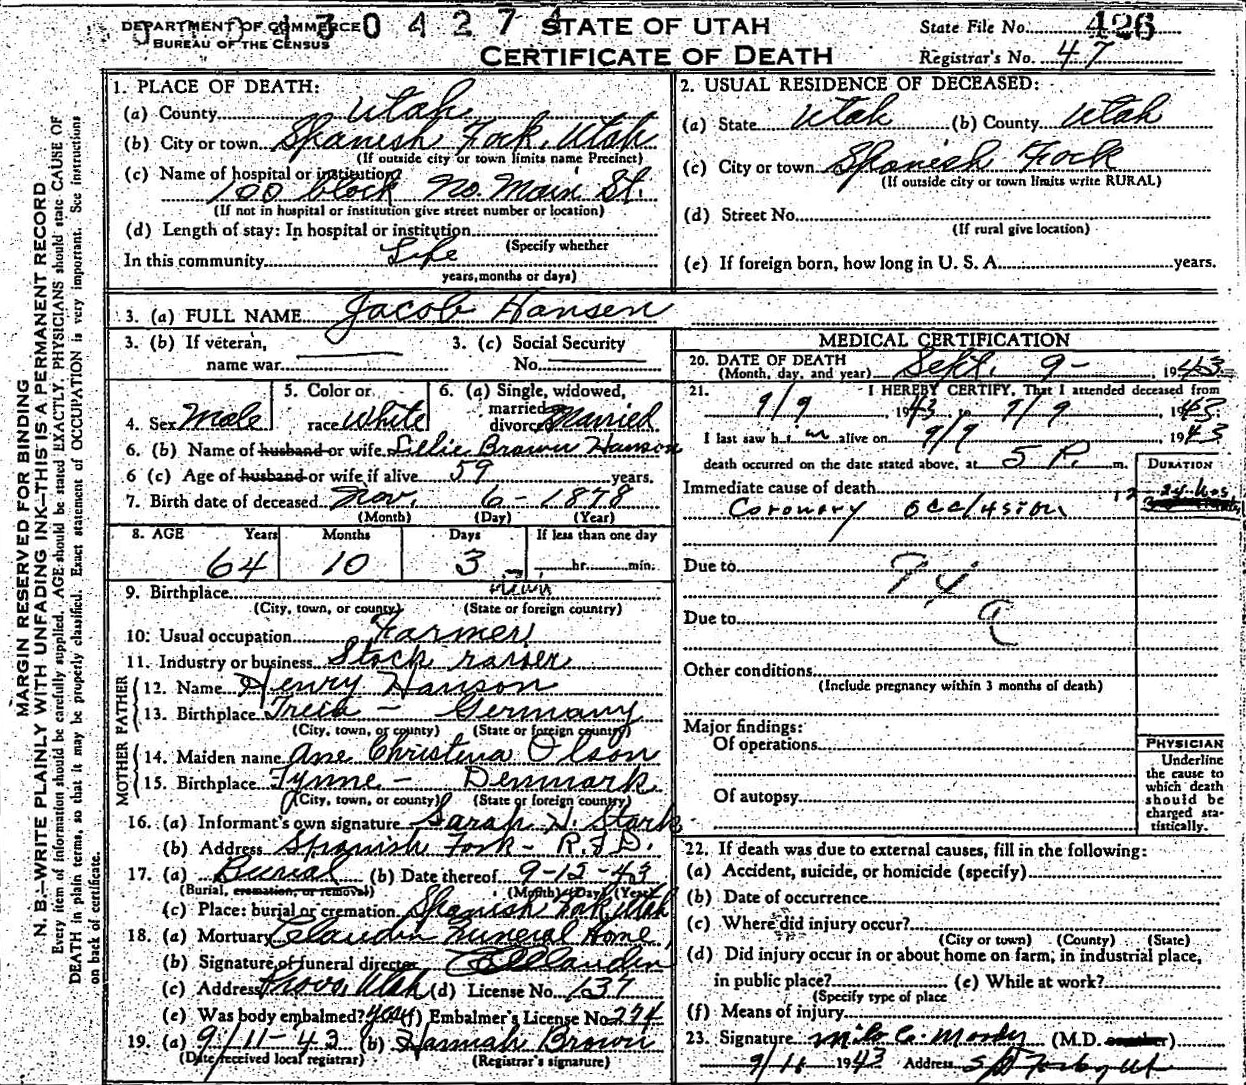 DEPARTMENT OF COMMERCE
BUREAU OF THE CENSUS
0 4 2 7 4
STATE OF UTAH
CERTIFICATE OF DEATH
State File No. 426
Registrar's No. 47
MARGIN RESERVED FOR BINDING
N. B.—WRITE PLAINLY WITH UNFADING INK—THIS IS A PERMANENT RECORD
Every item of information should be carefully supplied. AGE should be stated EXACTLY. PHYSICIANS should state CAUSE OF
DEATH in plain terms, so that it may be properly classified. Exact statement of OCCUPATION is very important. See instructions
on back of certificate.
1. PLACE OF DEATH:
(a) County Utah
(b) City or town Spanish Fork, Utah
(If outside city or town limits name Precinct)
(c) Name of hospital or institution
100 block No. Main St.
(If not in hospital or institution give street number or location)
(d) Length of stay: In hospital or institution
(Specify whether
In this community Life
years, months or days)
2. USUAL RESIDENCE OF DECEASED:
(a) State Utah (b) County Utah
(c) City or town Spanish Fork
(If outside city or town limits write RURAL)
(d) Street No.
(If rural give location)
(e) If foreign born, how long in U. S. A. years.
3. (a) FULL NAME Jacob Hansen
3. (b) If veteran, name war
3. (c) Social Security No.
4. Sex Male
5. Color or race White
6. (a) Single, widowed, married, divorced Married
6. (b) Name of husband or wife Lillie Brown Hanson
6 (c) Age of husband or wife if alive 59 years.
7. Birth date of deceased Nov. 6 - 1878
(Month) (Day) (Year)
8. AGE Years Months Days If less than one day
64 10 3 hr. min.
9. Birthplace Utah
(City, town, or county) (State or foreign country)
10. Usual occupation Farmer
11. Industry or business Stock raiser
FATHER
12. Name Henry Hanson
13. Birthplace Treia - Germany
(City, town, or county) (State or foreign country)
MOTHER
14. Maiden name Ane Christena Olson
15. Birthplace Fynne - Denmark
(City, town, or county) (State or foreign country)
16. (a) Informant's own signature Sarah H. Stark
(b) Address Spanish Fork - R.F.D.
17. (a) Burial (b) Date thereof 9-12-43
(Burial, cremation, or removal) (Month) (Day) (Year)
(c) Place: burial or cremation Spanish Fork, Utah
18. (a) Mortuary Claudin Funeral Home
(b) Signature of funeral director Claudin
(c) Address Provo, Utah (d) License No. 137
(e) Was body embalmed? yes (f) Embalmer's License No. 274
19. (a) 9/11-43 (b) Hannah Brown
(Date received local registrar) (Registrar's signature)
MEDICAL CERTIFICATION
20. DATE OF DEATH
(Month, day, and year) Sept. 9- 1943
21. I HEREBY CERTIFY, That I attended deceased from
9/9, 1943 to 9/9, 1943
I last saw him alive on 9/9, 1943
death occurred on the date stated above, at 5 P. m.
DURATION
Immediate cause of death
Coronary occlusion 12 24 hrs
Due to 94
Due to a
Other conditions
(Include pregnancy within 3 months of death)
Major findings:
Of operations
Of autopsy
PHYSICIAN
Underline
the cause to
which death
should be
charged sta-
tistically.
22. If death was due to external causes, fill in the following:
(a) Accident, suicide, or homicide (specify)
(b) Date of occurrence
(c) Where did injury occur?
(City or town) (County) (State)
(d) Did injury occur in or about home on farm, in industrial place,
in public place? (e) While at work?
(Specify type of place
(f) Means of injury
23. Signature Milo C. Moody (M.D.
9/11 1943 Address